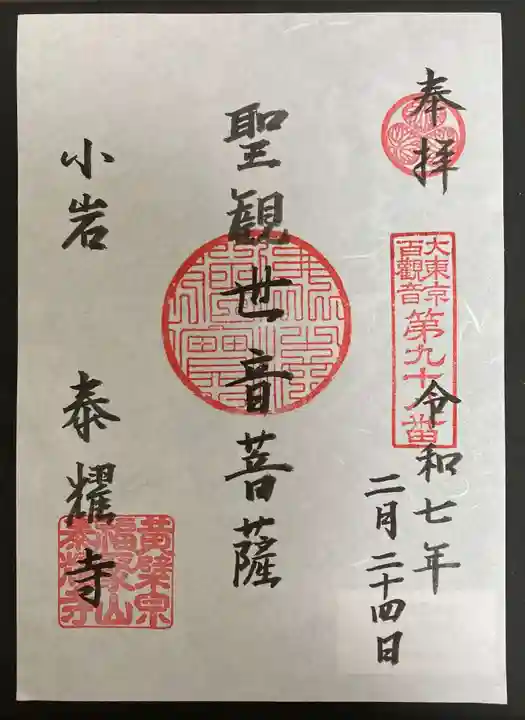 奉拝
大東京
百觀音
第九十番
令和七年
二月二十四日
聖観世音菩薩
小岩 泰耀寺
黄檗宗
福聚山
泰耀寺